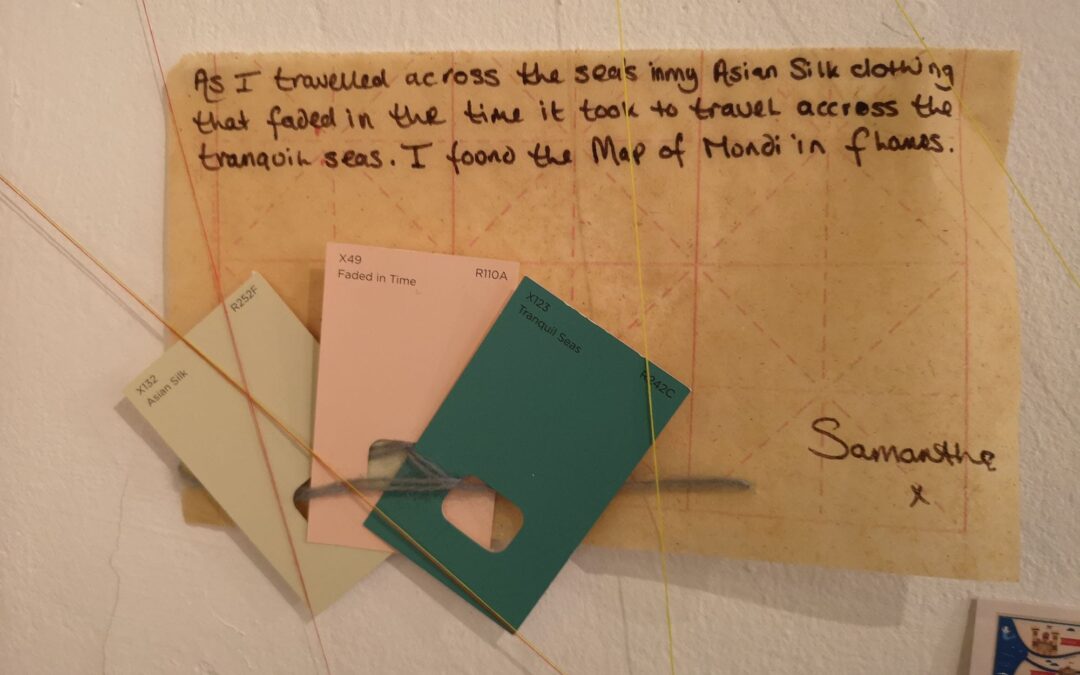 As I travelled across the seas in my Asian Silk clothing
that faded in the time it took to travel accross the
tranquil seas. I foond the Map of Mondi in flames.
X49
R110A
Faded in Time
R252F
X132
Asian Silk
X123
Tranquil Seas
R242C
Samantha
x